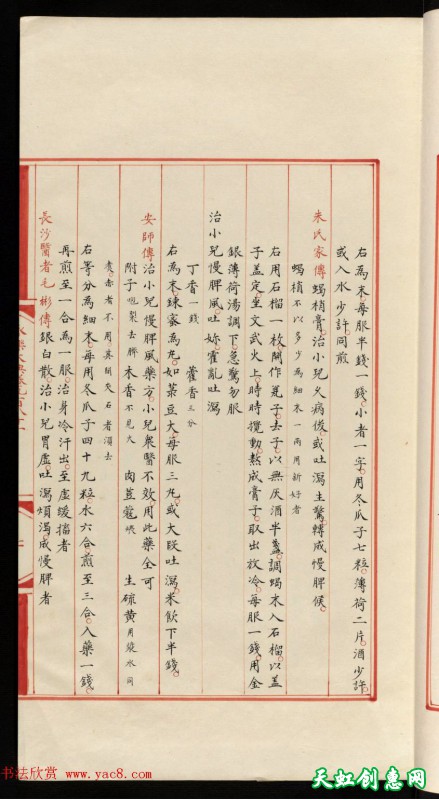 右為末每服半錢一錢小者一字用冬瓜子七粒薄荷二片酒少許
或入水少許同煎
朱氏家傳蝎梢膏治小兒久病後或吐瀉生驚轉成慢脾候
蝎梢不以多少為細末一兩用新好者
右用石榴一枚開作瓮子去子以無灰酒半盞調蝎末入石榴以蓋
子蓋定坐文武火上時時攪動熬成膏子取出放冷每服一錢用金
銀薄荷湯調下急驚勿服
治小兒慢脾風吐妳霍亂吐瀉
丁香一錢 藿香三分
右為末鍊蜜為丸如菉豆大每服三丸或大段吐瀉米飲下半錢
安師傳治小兒慢脾風藥方小兒衆醫不效用此藥全可
附子炮裂去臍 木香不見火 肉荳蔲 生硫黄
赤者不用
右等分為細末每用冬瓜子四十九粒水六合煎至三合入藥一錢
再煎至一合為一服治身冷汗出至虛緩搐者
長沙醫者毛彬傳銀白散治小兒胃虛吐瀉煩渴成慢脾者
书法欣赏 www.yac8.com
天虹创惠网